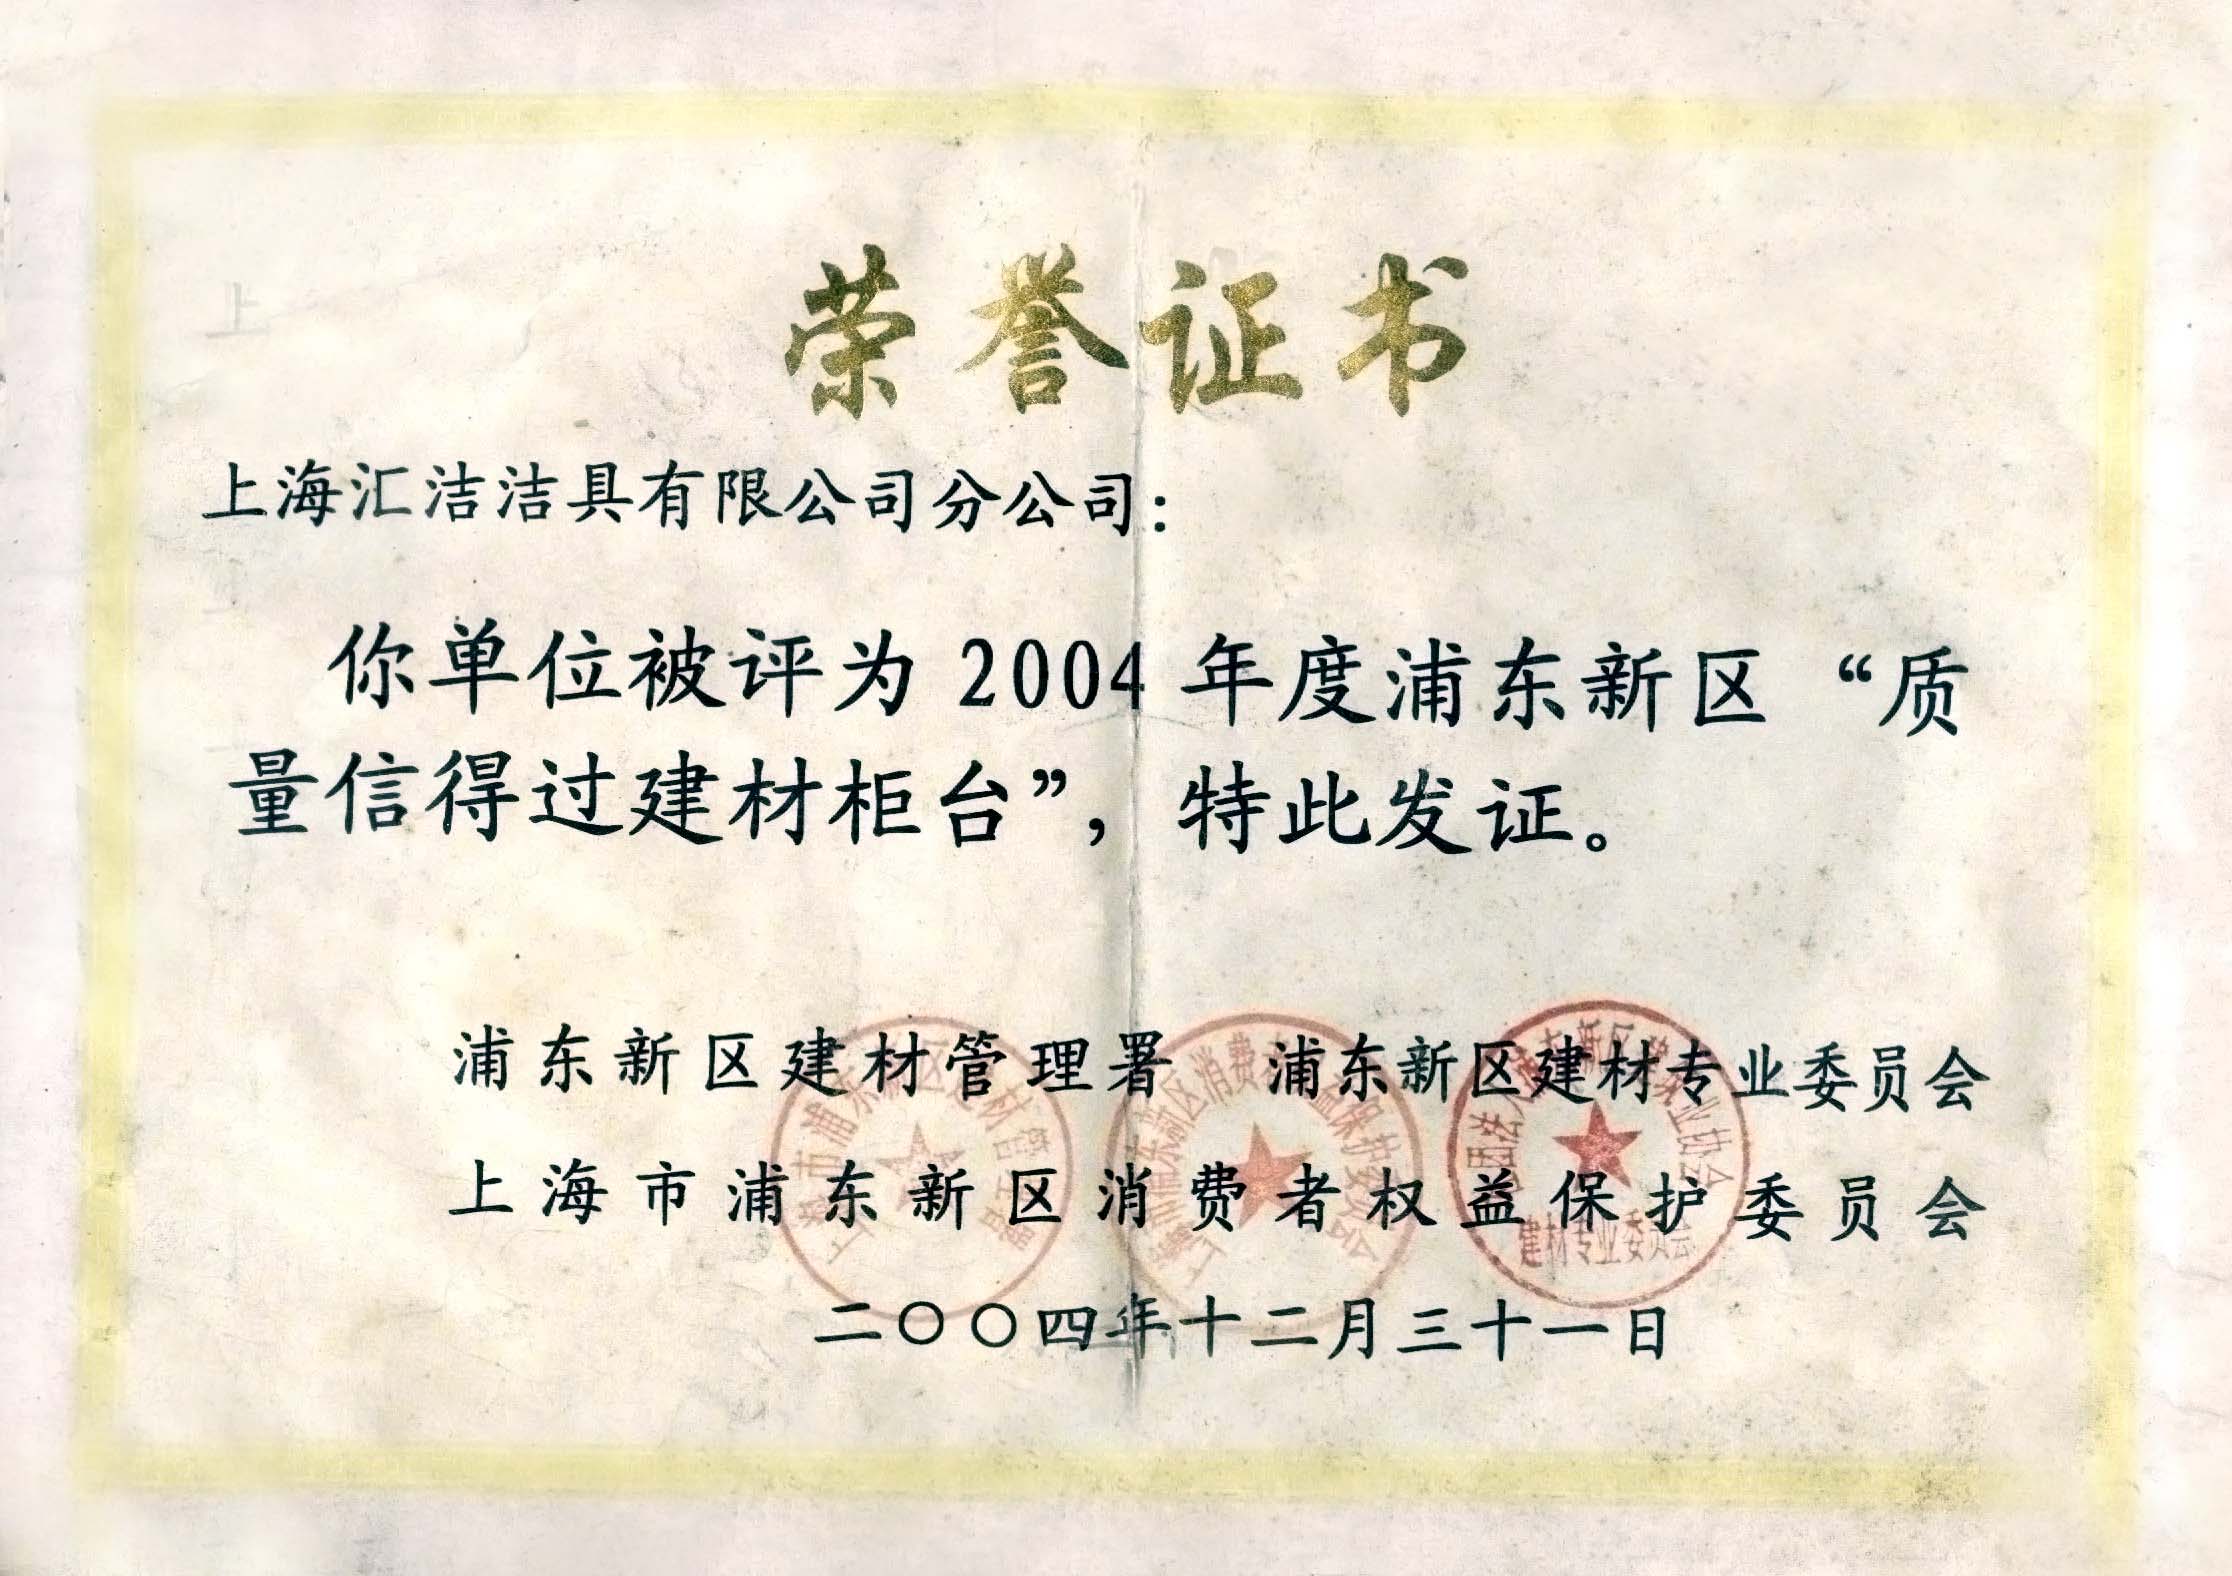 荣誉证书
上海汇洁洁具有限公司分公司：
你单位被评为 2004 年度浦东新区“质
量信得过建材柜台”，特此发证。
浦东新区建材管理署 浦东新区建材专业委员会
上海市浦东新区消费者权益保护委员会
二〇〇四年十二月三十一日
建材专业委员会